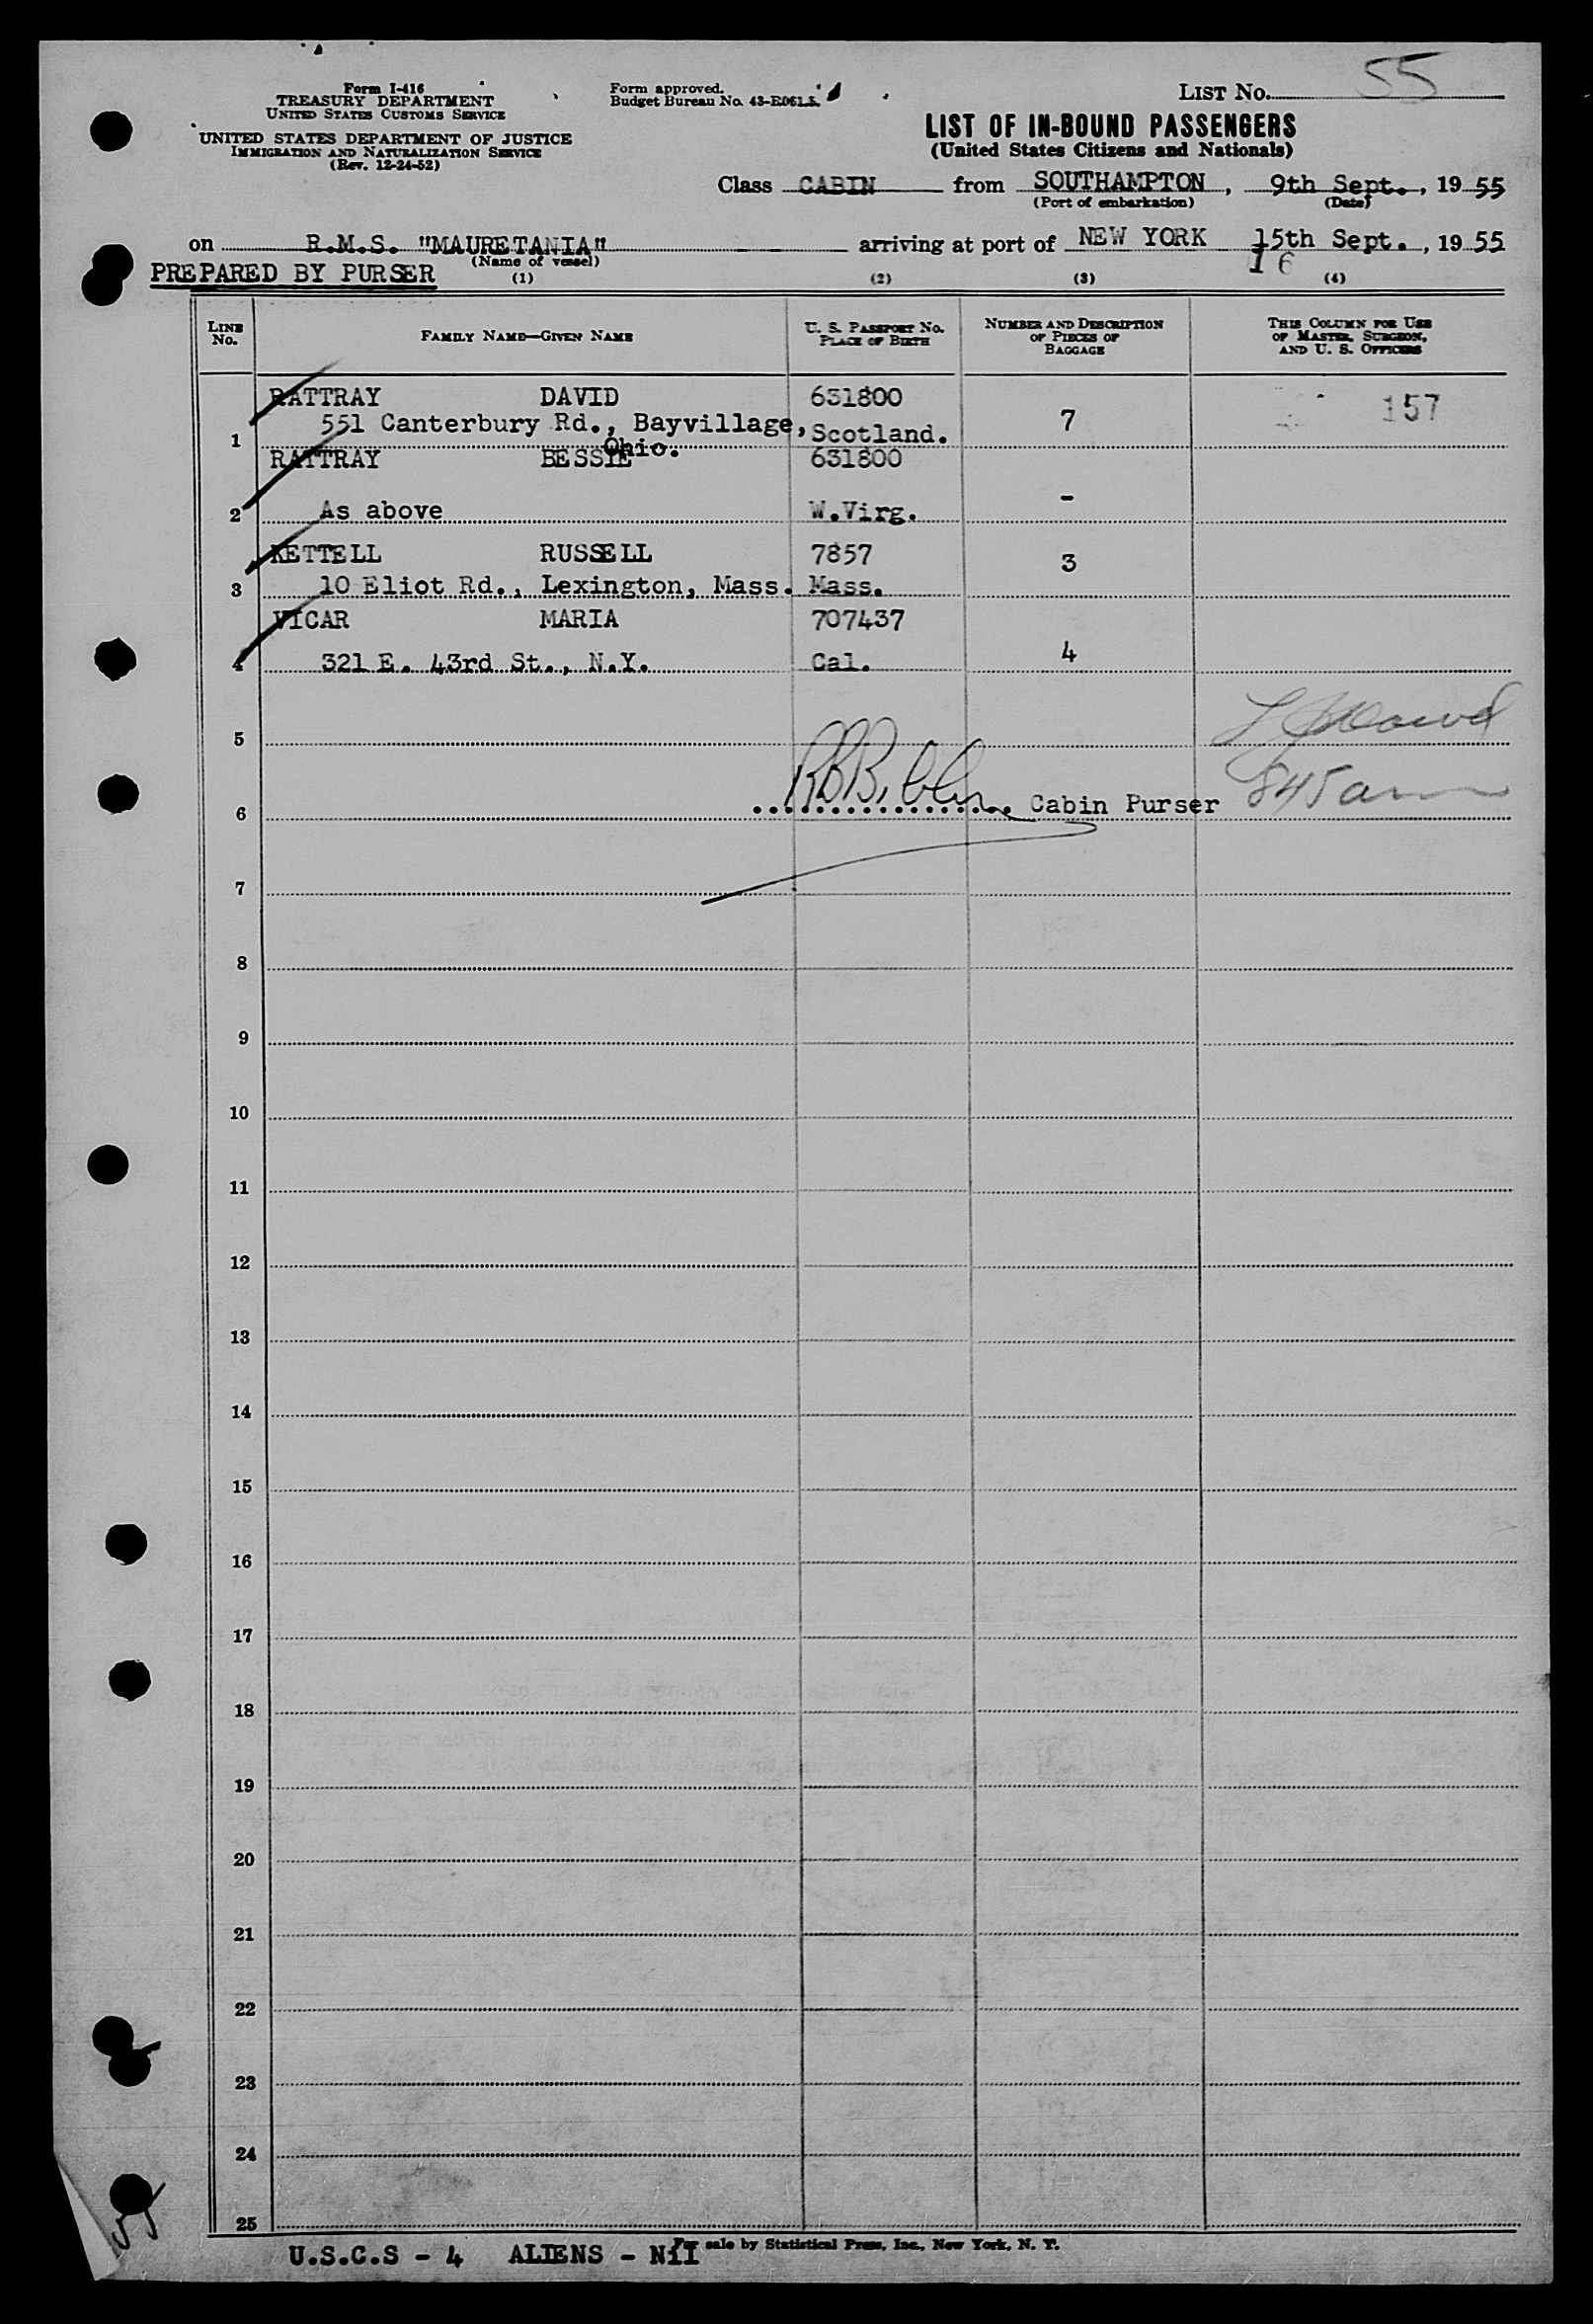 Form I-416
TREASURY DEPARTMENT
UNITED STATES CUSTOMS SERVICE
UNITED STATES DEPARTMENT OF JUSTICE
IMMIGRATION AND NATURALIZATION SERVICE
(Rev. 12-24-52)
Form approved.
Budget Bureau No.
LIST No. 55
LIST OF IN-BOUND PASSENGERS
(United States Citizens and Nationals)
Class CABIN from SOUTHAMPTON, 9th Sept., 1955
(Port of embarkation) (Date)
on R.M.S. "MAURETANIA" arriving at port of NEW YORK 15th Sept., 1955
(Name of vessel) 16
PREPARED BY PURSER (1) (2) (3) (4)
LINE No. FAMILY NAME—GIVEN NAME U. S. PASSPORT No. PLACE OF BIRTH NUMBER AND DESCRIPTION OF PIECES OF BAGGAGE THIS COLUMN FOR USE OF MASTER, SURGEON, AND U. S. OFFICERS
RATTRAY DAVID 631800 157
1 551 Canterbury Rd., Bayvillage, Scotland. 7
Ohio.
RATTRAY BESSIE 631800
2 As above W.Virg. -
KETTELL RUSSELL 7857 3
3 10 Eliot Rd., Lexington, Mass. Mass.
VICAR MARIA 707437
4 321 E. 43rd St., N.Y. Cal. 4
5
6 Cabin Purser 845am
7
8
9
10
11
12
13
14
15
16
17
18
19
20
21
22
23
24
25
For sale by Statistical Press, Inc., New York, N. Y.
U.S.C.S - 4 ALIENS - Nil